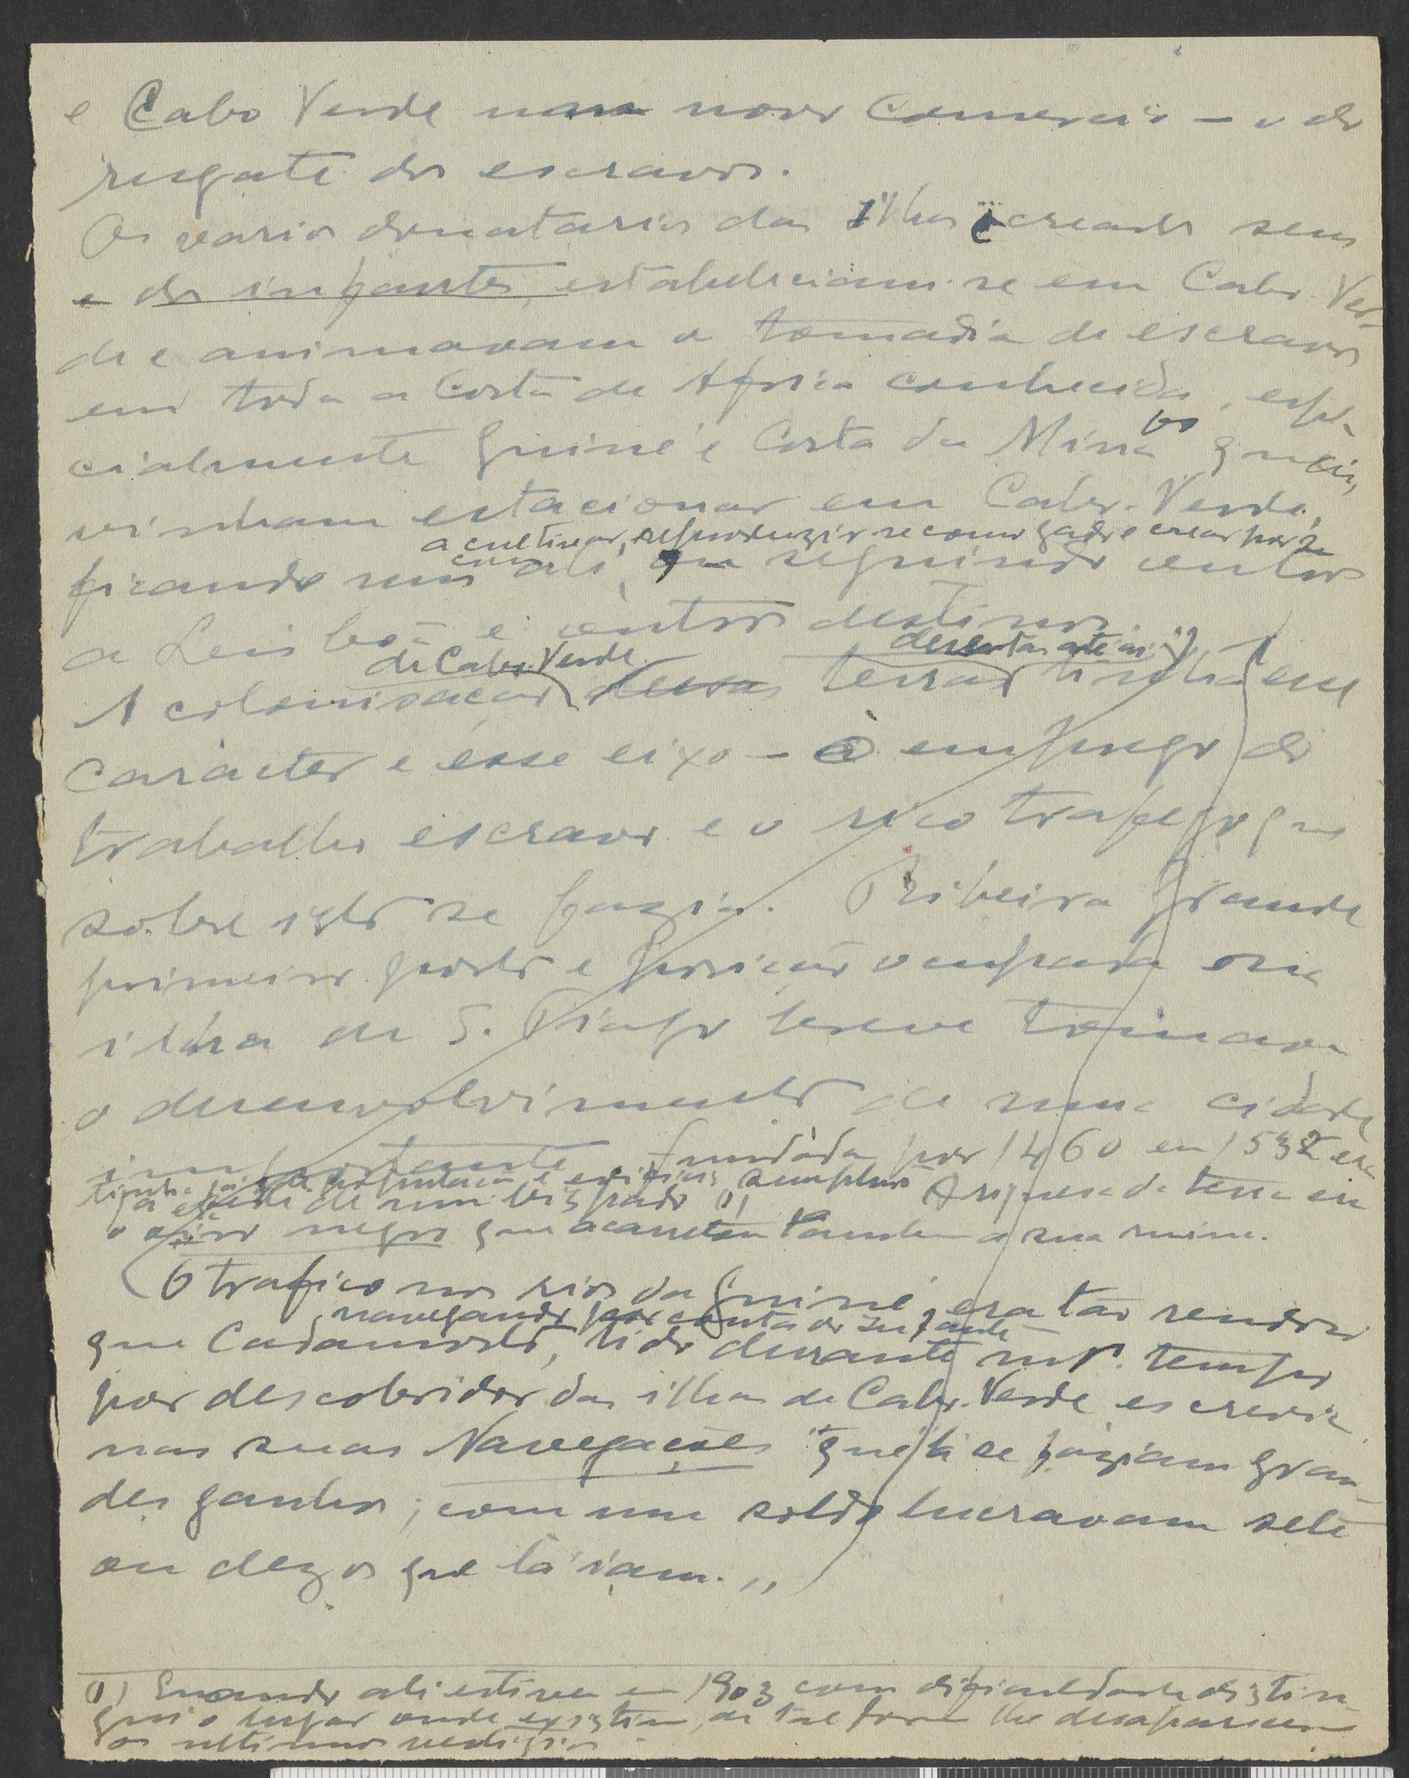 e Cabo Verde num novo comercio – o do
resgate dos escravos.
Os varios donatarios das Ilhas, creados seus
e do infante, estabeleciam-se em Cabo Ver-
de e animavam a tomadia de escravos
em toda a Costa de Africa conhecida, espe-
cialmente Guiné e Costa da Mina os quaes,
vinham estacionar em Cabo-Verde,
a cultivar, reproduzir-se como gado e crear
ficando uns ali, ou seguindo outros
a Lisboa e outros destinos.
de Cabo Verde desertas até ai
A colonisação dessas terras tinha esse
carácter e esse eixo – o emprego do
trabalho escravo e o rico trafego que
sobre isto se fazia. Ribeira Grande
primeiro porto e povoação ocupada na
ilha de S. Tiago breve tomava
o desenvolvimento de uma cidade
importante fundada por 1460 em 1532 era
tinha já população e edificios
já séde de um bispado (1) A riqueza da terra era
o negro que acarretou tambem a sua ruina.
O trafico nos rios da Guiné, era tão rendoso
navegando por conta do Infante
que Cadamosto, tido durante mto. tempo
por descobridor das ilhas de Cabo-Verde escrevia
nas suas Navegações "que ali se faziam gran-
des ganhos; com um soldo lucravam sete
ou dez os que lá iam."
(1) Quando ali estive em 1903 com dificuldade distin-
gui o lugar onde existiu, de tal forma lhe desapareceram
os ultimos vestigios.